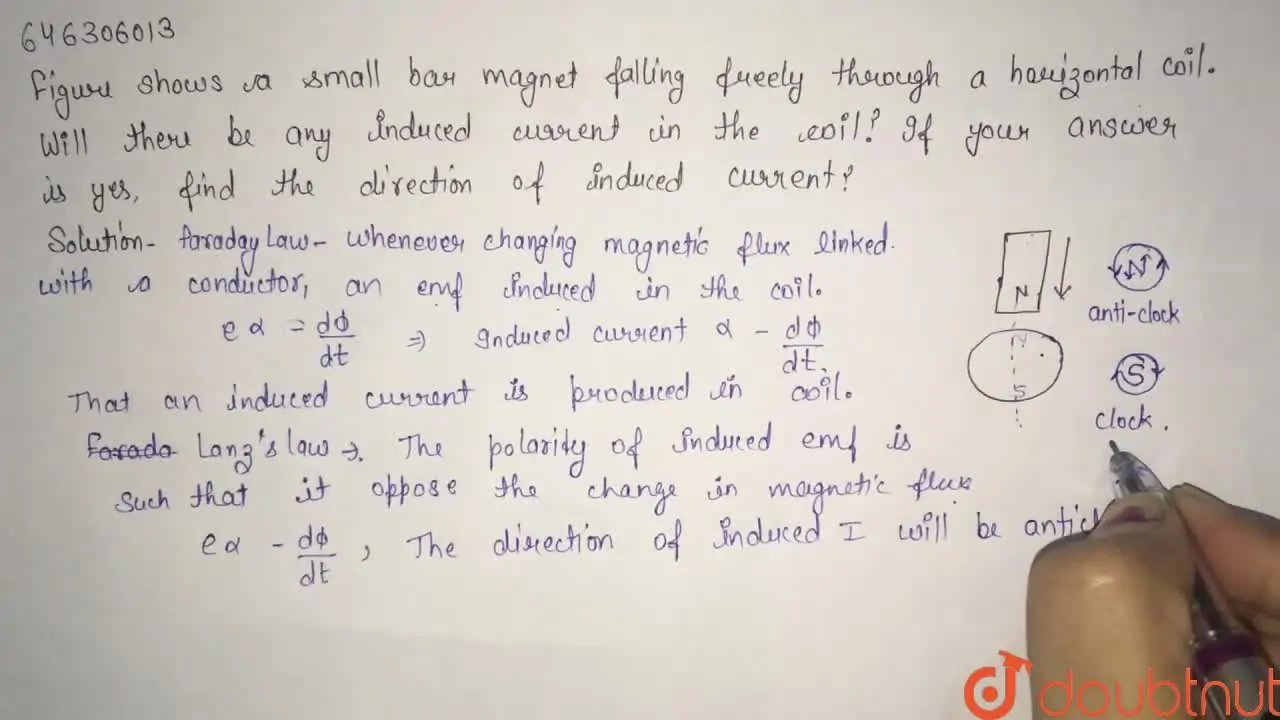 646306013
Figure shows a small bar magnet falling freely through a horizontal coil.
Will there be any induced current in the coil? If your answer
is yes, find the direction of induced current?
Solution- faraday Law- Whenever changing magnetic flux linked.
with a conductor, an emf induced in the coil.
e α = dϕ/dt ⇒ Induced current α - dϕ/dt.
That an induced current is produced in coil.
Farada Lanz's law →. The polarity of induced emf is
Such that it oppose the change in magnetic flux
e α - dϕ/dt , The direction of induced I will be anticl
N
N
anti-clock
N
S
S
clock.
doubtnut